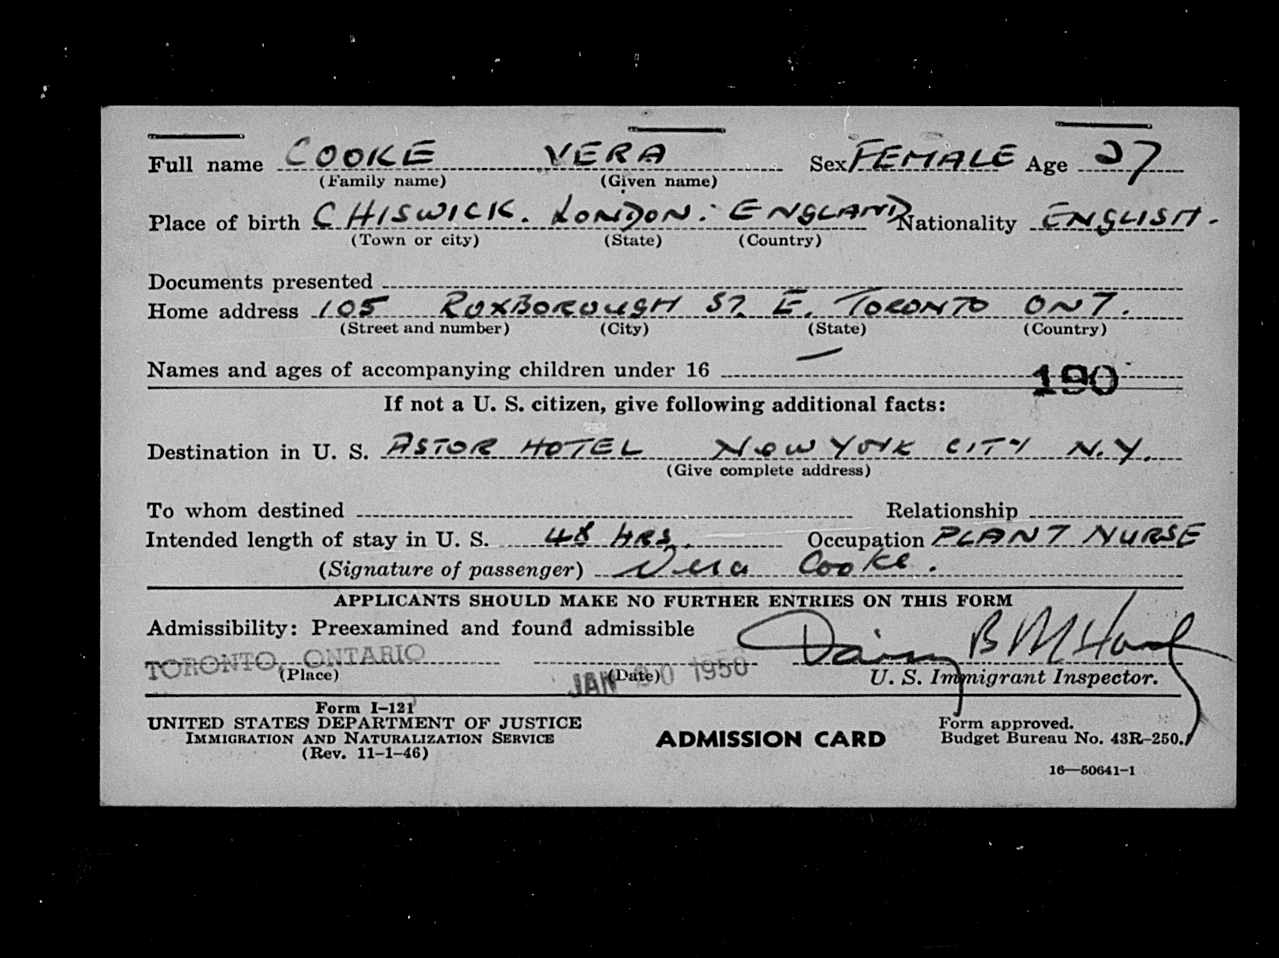 Full name COOKE VERA Sex FEMALE Age 27
(Family name) (Given name)
Place of birth CHISWICK. LONDON. ENGLAND Nationality ENGLISH.
(Town or city) (State) (Country)
Documents presented
Home address 105 ROXBOROUGH ST. E. TORONTO ONT.
(Street and number) (City) (State) (Country)
Names and ages of accompanying children under 16 —
190
If not a U. S. citizen, give following additional facts:
Destination in U. S. ASTOR HOTEL NEW YORK CITY N.Y.
(Give complete address)
To whom destined Relationship
Intended length of stay in U. S. 48 HRS. Occupation PLANT NURSE
(Signature of passenger) Vera Cooke.
APPLICANTS SHOULD MAKE NO FURTHER ENTRIES ON THIS FORM
Admissibility: Preexamined and found admissible
TORONTO, ONTARIO JAN 1950
(Place) (Date) U. S. Immigrant Inspector.
Form I-121
UNITED STATES DEPARTMENT OF JUSTICE
IMMIGRATION AND NATURALIZATION SERVICE
(Rev. 11-1-46)
ADMISSION CARD
Form approved.
Budget Bureau No. 43R-250.
16—50641-1